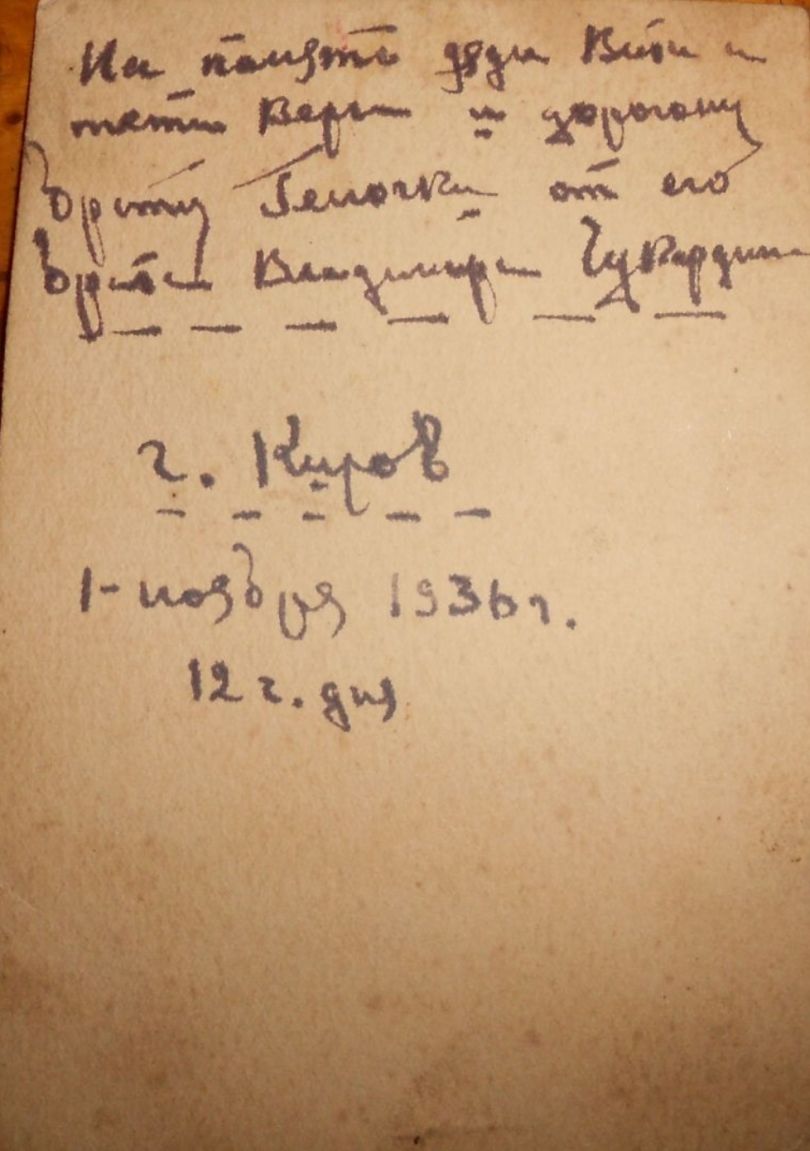 На память дяди Вити и
тети Веры и дорогому
брату Геночки от его
брата Владимира
г. Киров
1-ноября 1936 г.
12 г. дня